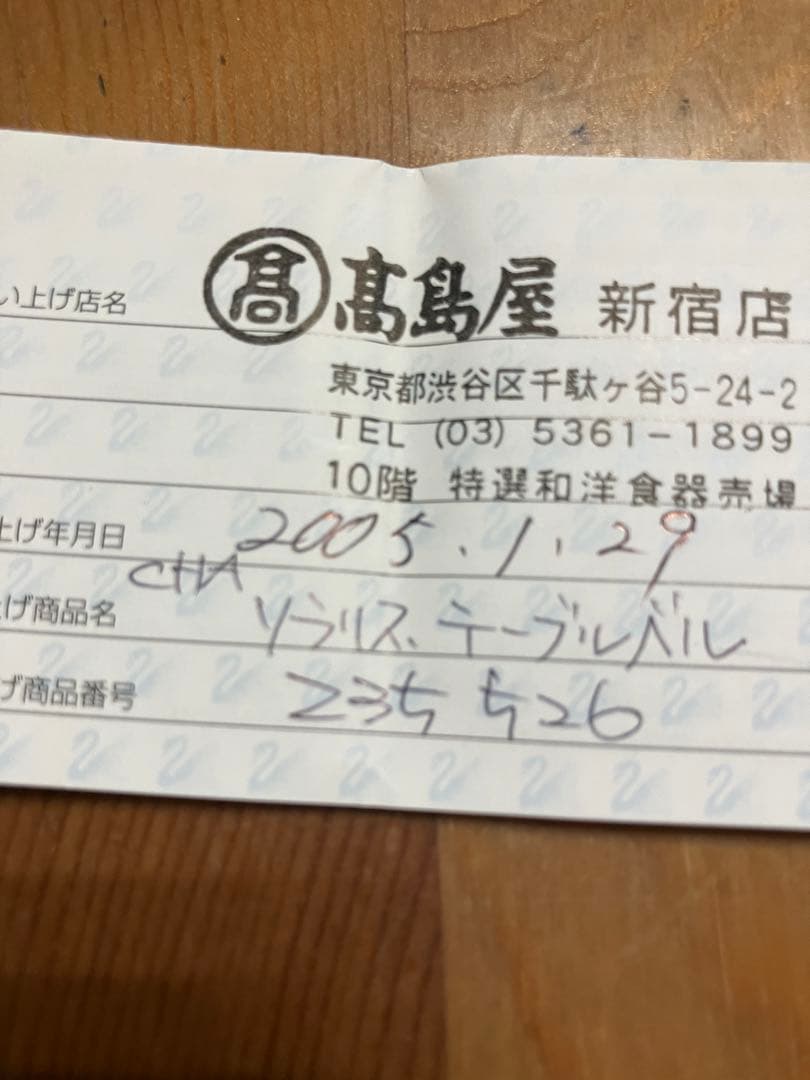 い上げ店名 髙 髙島屋 新宿店
東京都渋谷区千駄ヶ谷5-24-2
TEL (03) 5361-1899
10階 特選和洋食器売場
上げ年月日 2005.1.29
CHA
げ商品名 ソラリス テーブルベル
げ商品番号 235 526